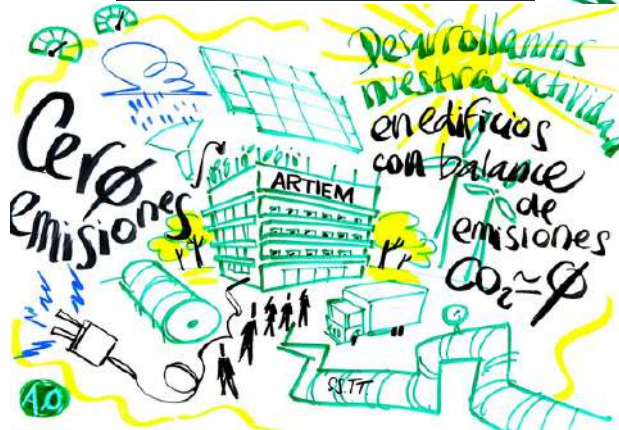 Cerø
emisiones
ARTIEM
Desarrollamos
nuestra actividad
en edificios
con balance
de
emisiones
CO₂≃ø
SS.TT.